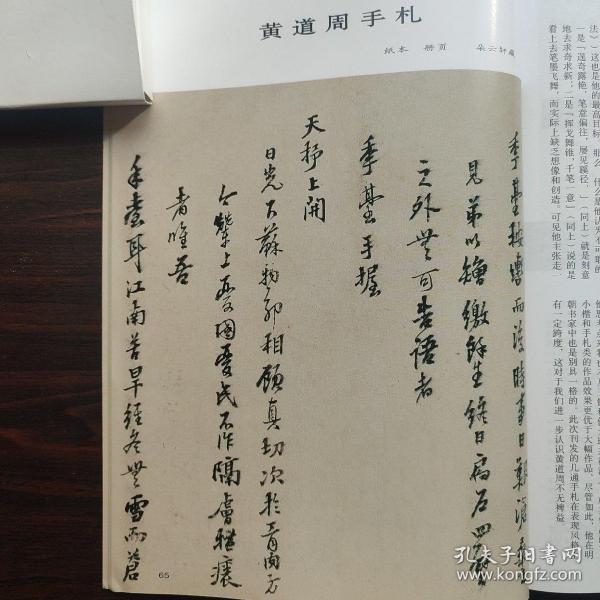 黄道周手札
纸本　册页　朵云轩藏
季臺按
而後時事日
見弟以矰繳餘生終日扃石四
之外無可告語者
季臺手握
天靜上開
日光下蘇物卯相顧真切次於
今輦上憂國憂民不作隔膚
者唯吾
年臺耳江南苦旱經冬無雪而
65
法）》这也是他的最高目标。那么，什么是他认为不可取的
一是「逞奇露艳，笔意偏往，屡见蹊径。」（同上）就是刻意
地去求奇求新；二是「挥戈舞锥，千笔一意」（同上）说的是
看上去笔墨飞舞，而实际上缺乏想像和创造。可见他主张走
小楷和手札类的作品效果更优于大幅作品。尽管如此，他在明
朝书家中也是别具一格的。此次刊发的几通手札在表现风格
有一定跨度，这对于我们进一步认识黄道周不无裨益
孔夫子旧书网
www.kongfz.com